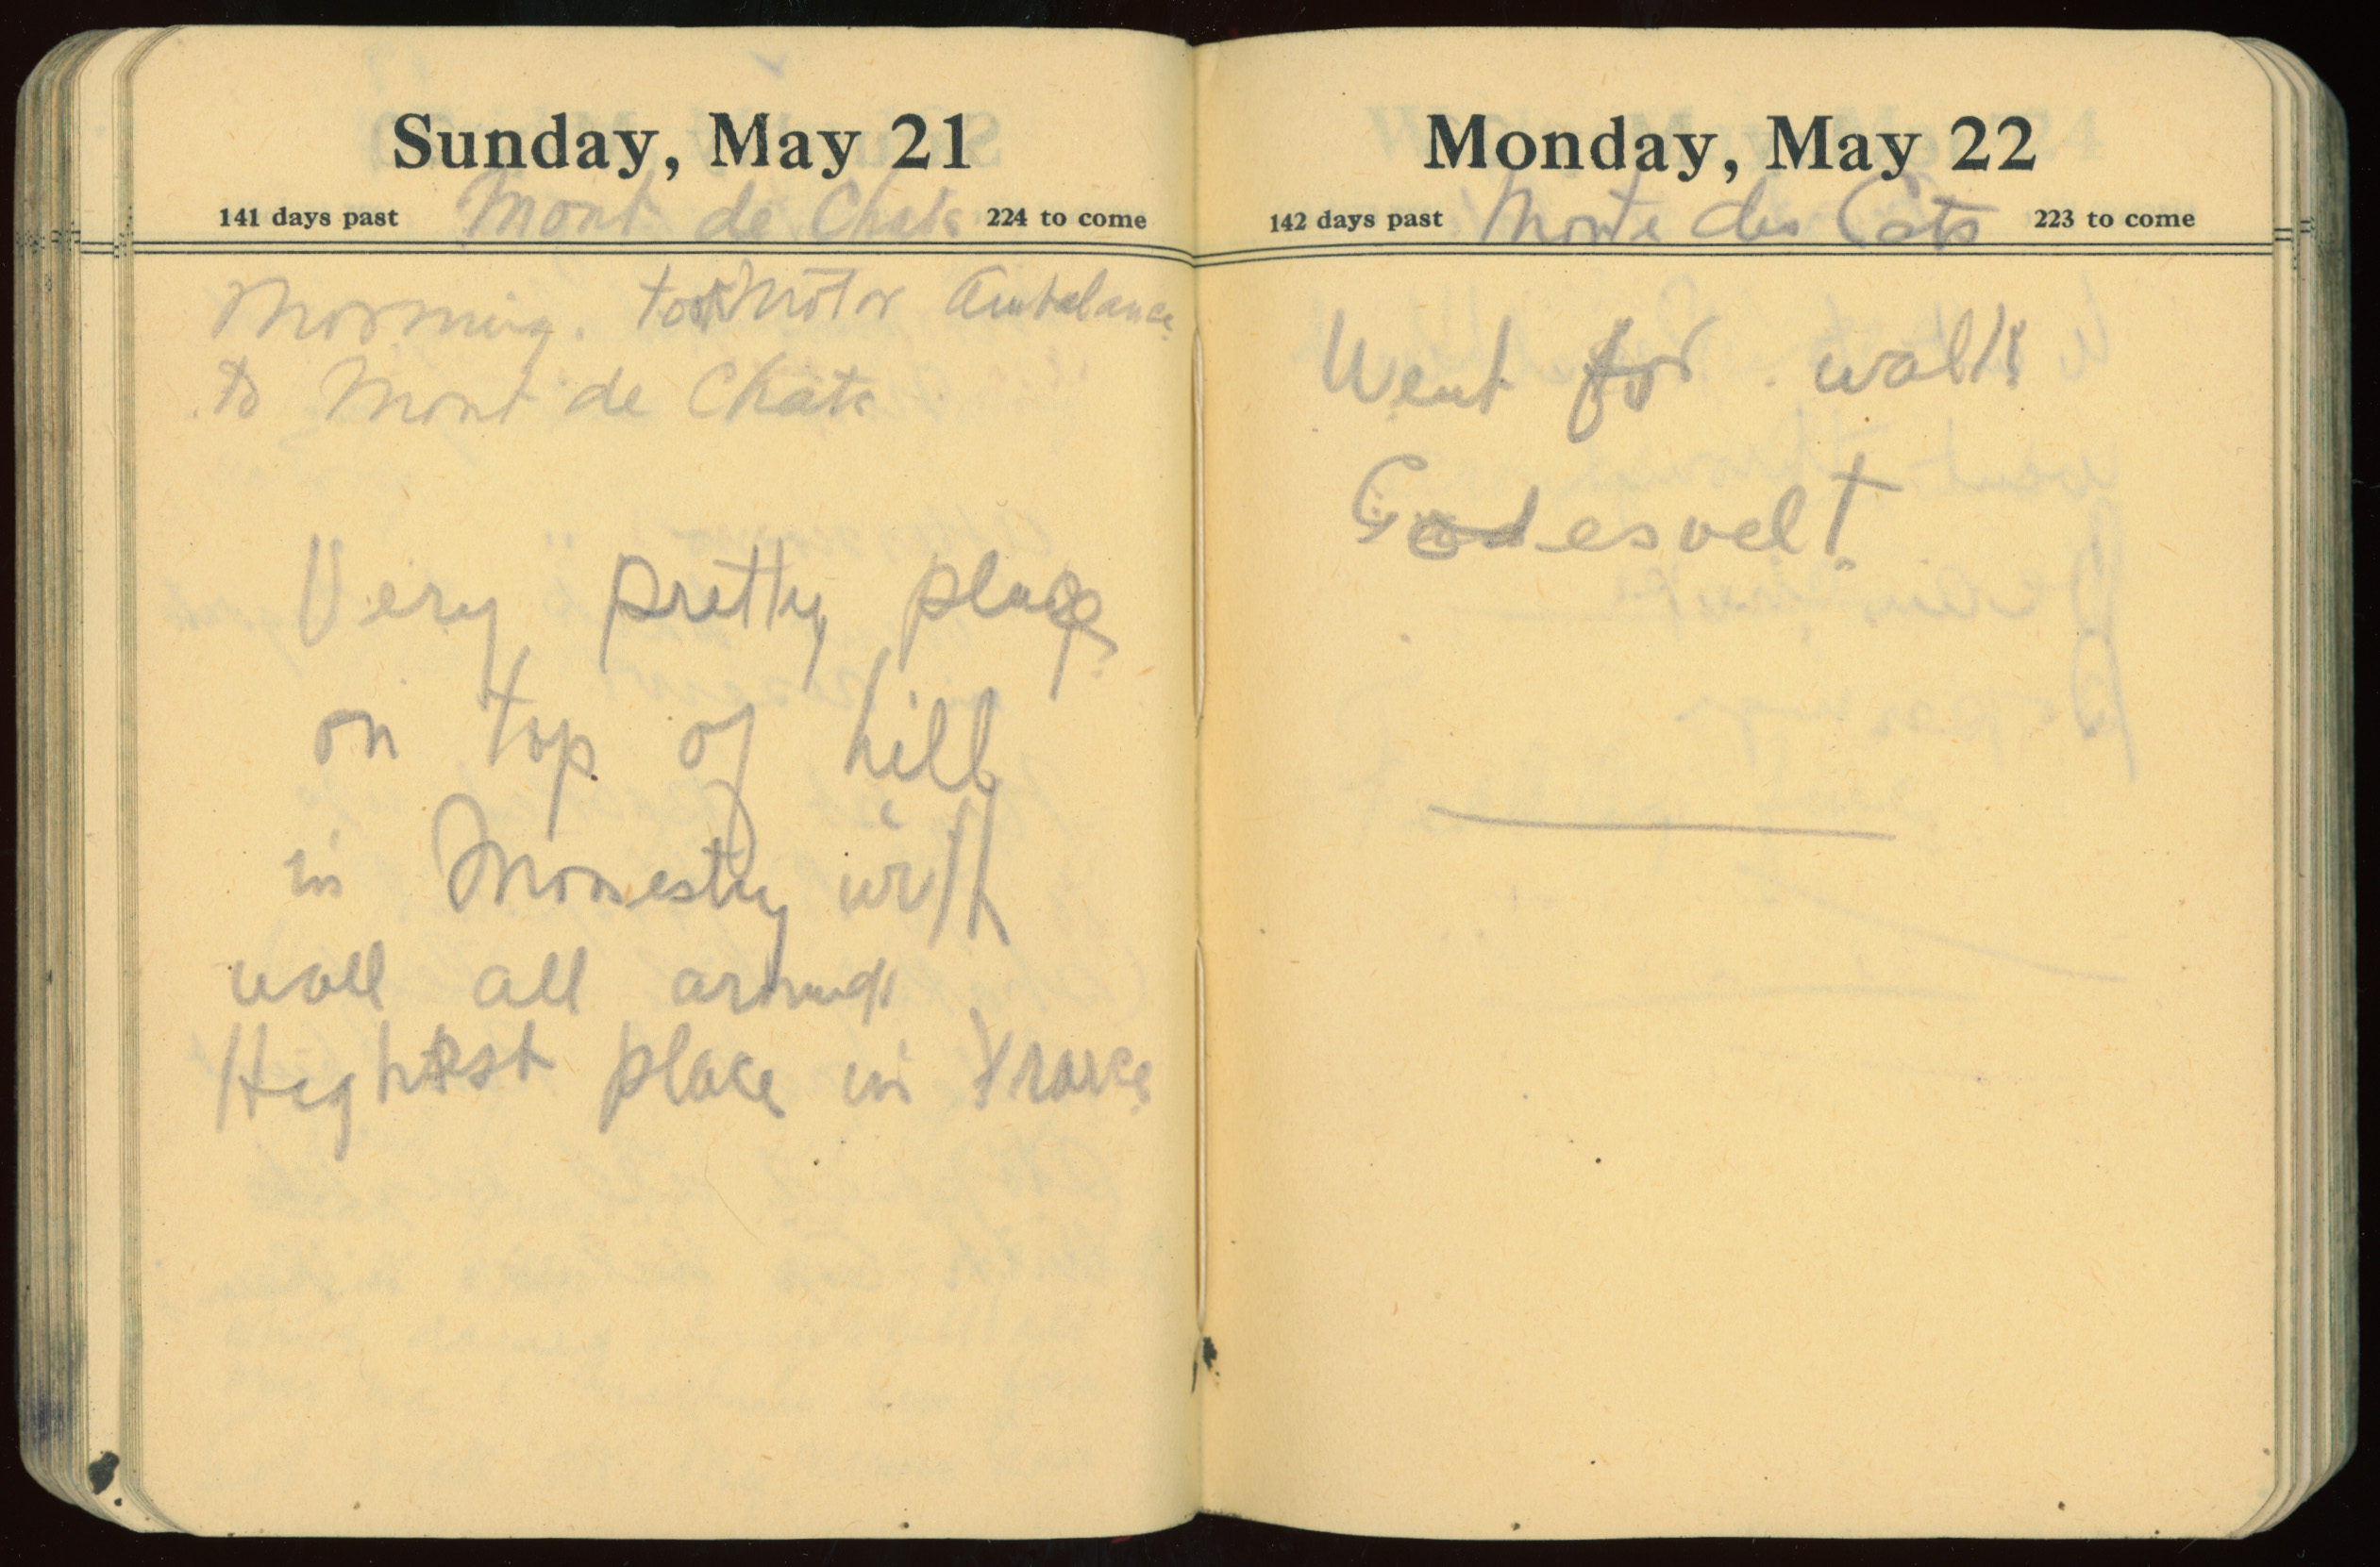 Sunday, May 21
141 days past Mont de Chats 224 to come
Morning. took Motor Ambulance
to Mont de Chats
Very pretty place
on top of hill
in Monestry with
wall all around
Highest place in France
Monday, May 22
142 days past Monte des Cats 223 to come
Went for walk
Godesvelt.